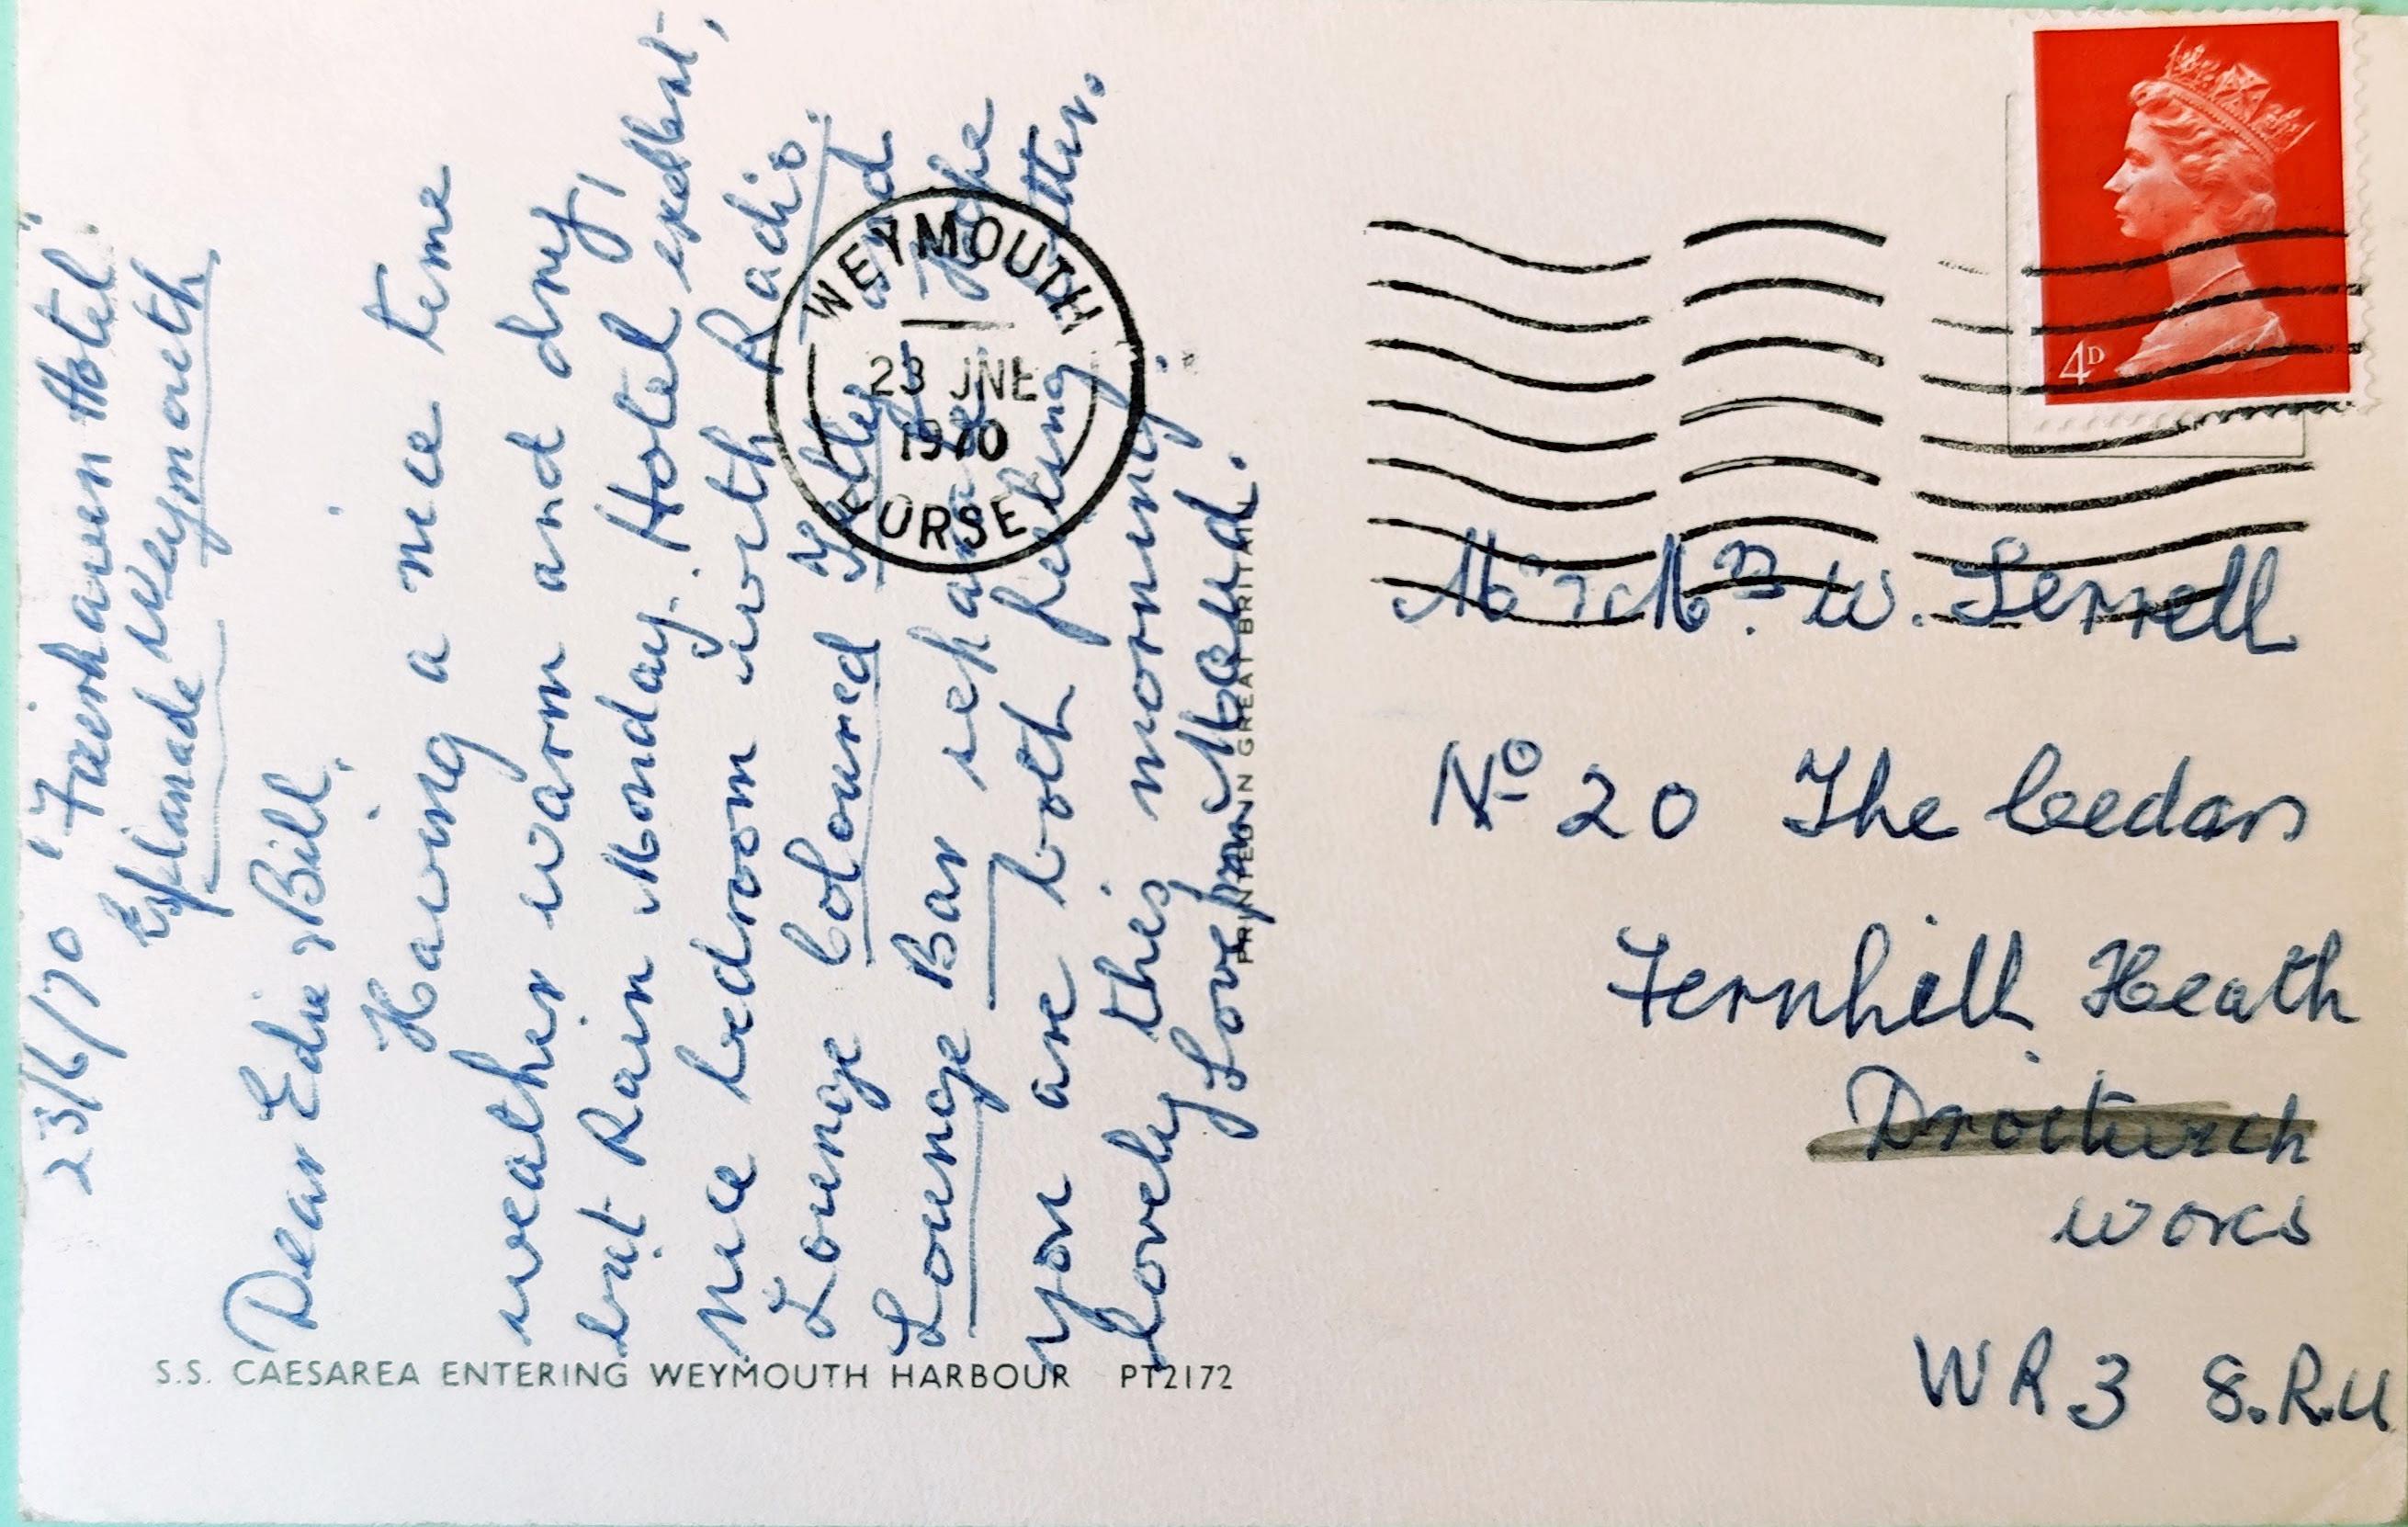 23/6/70 "Fairhaven Hotel"
Esplanade Weymouth
Dear Edie & Bill,
Having a nice time
weather warm and dry,
but Rain Monday. Hotel exellent,
nice bedroom with Radio.
Lounge Coloured Telley and
Lounge Bar ich Hope
you are both feeling better.
lovely this morning.
Love from Maud.
S.S. CAESAREA ENTERING WEYMOUTH HARBOUR PT2172
PRINTED IN GREAT BRITAIN
WEYMOUTH
23 JNE
1970
DORSET
4D
Mr & Mrs. W. Serrell
No 20 The Cedars
Fernhill Heath
Droitwich
Worcs
WR3 8.R.U